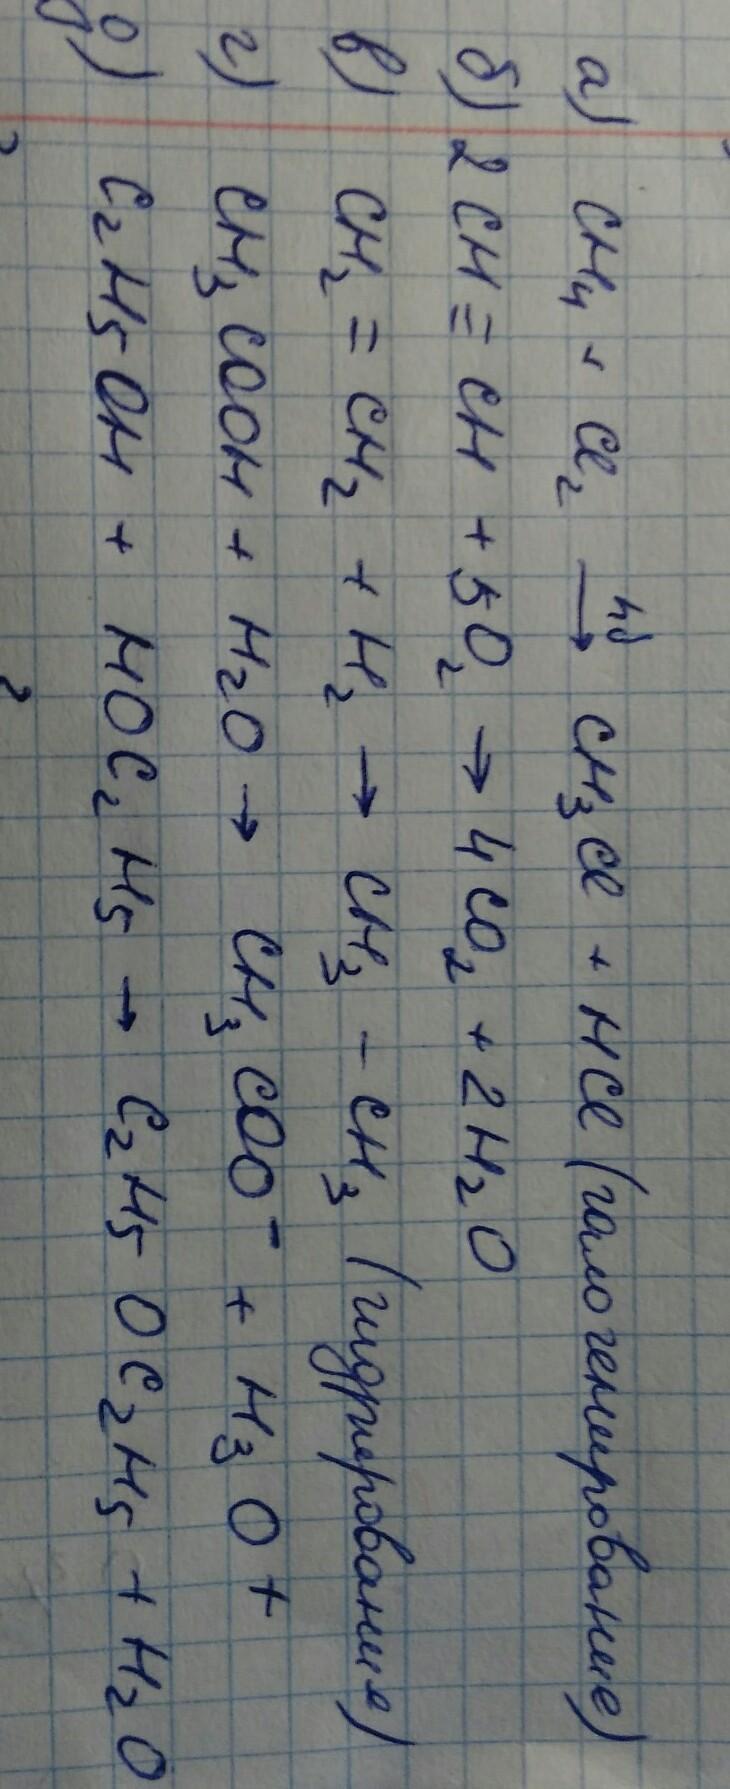 а) CH₄ + Cl₂ →hδ CH₃Cl + HCl (галогенирование)
б) 2CH≡CH + 5O₂ → 4CO₂ + 2H₂O
в) CH₂ = CH₂ + H₂ → CH₃ – CH₃ (гидрирование)
г) CH₃COOH + H₂O → CH₃COO⁻ + H₃O⁺
д) C₂H₅OH + HOC₂H₅ → C₂H₅OC₂H₅ + H₂O